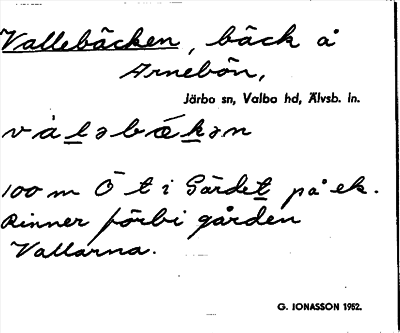 Vallebäcken, bäck å
Arnebön,
Järbo sn, Valbo hd, Älvsb. ln.
våləbǽkən
100 m Ö t i Gärdet på ek.
Rinner förbi gården
Vallarna.
G. JONASSON 1952.